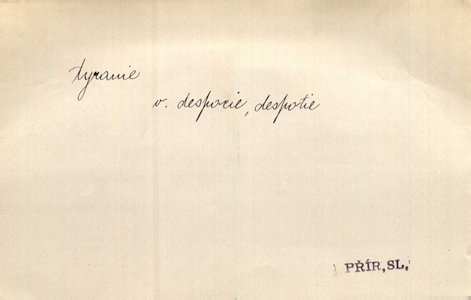 tyranie
v. despocie, despotie
PŘÍR. SL.